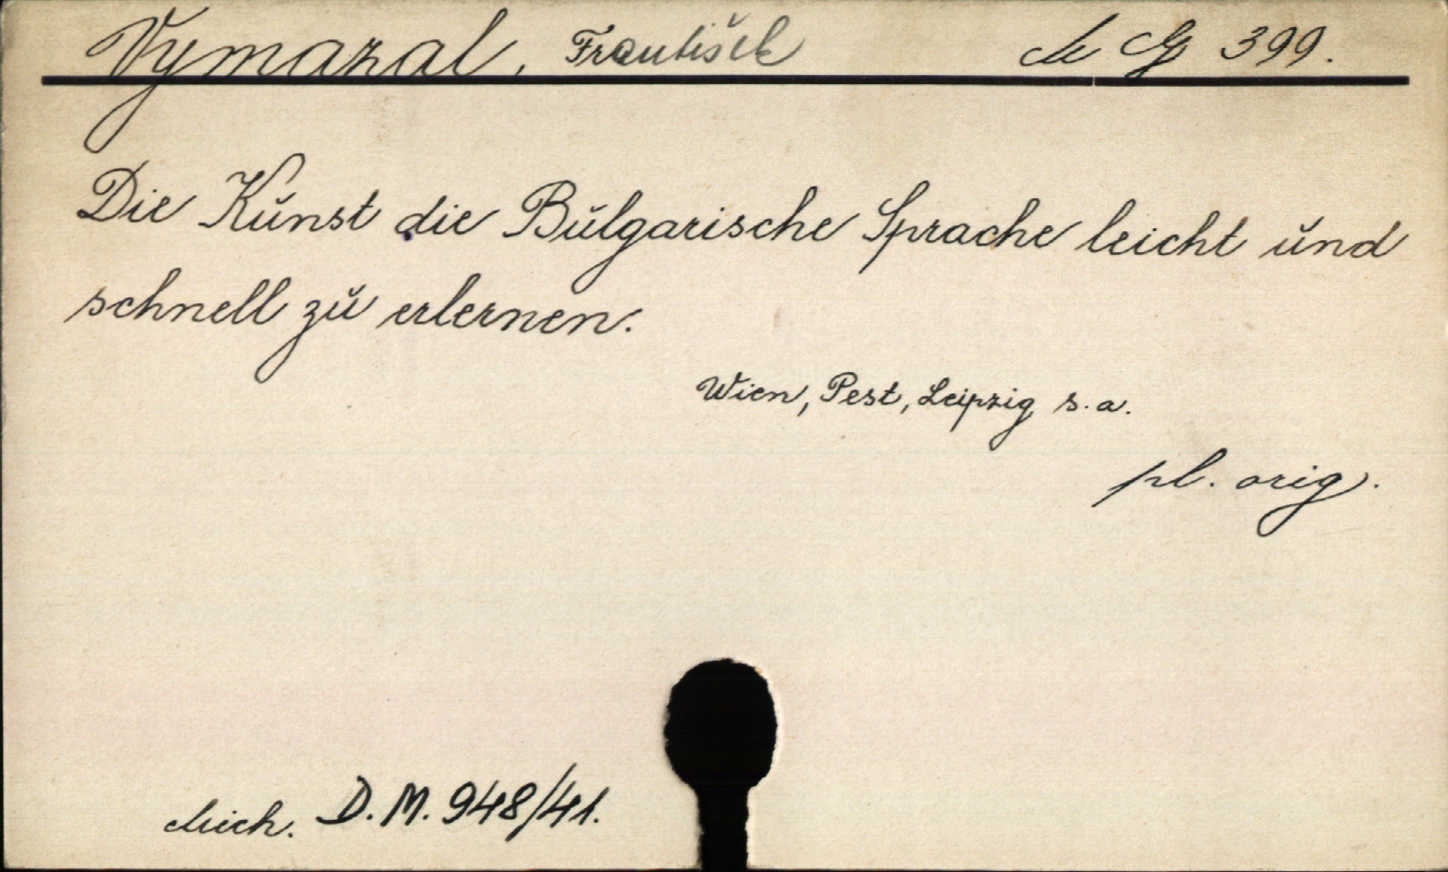 Vymazal, František M G 399.
Die Kunst die Bulgarische Sprache leicht und
schnell zu erlernen.
Wien, Pest, Leipzig s.a.
pl. orig.
D.M. 948/41.